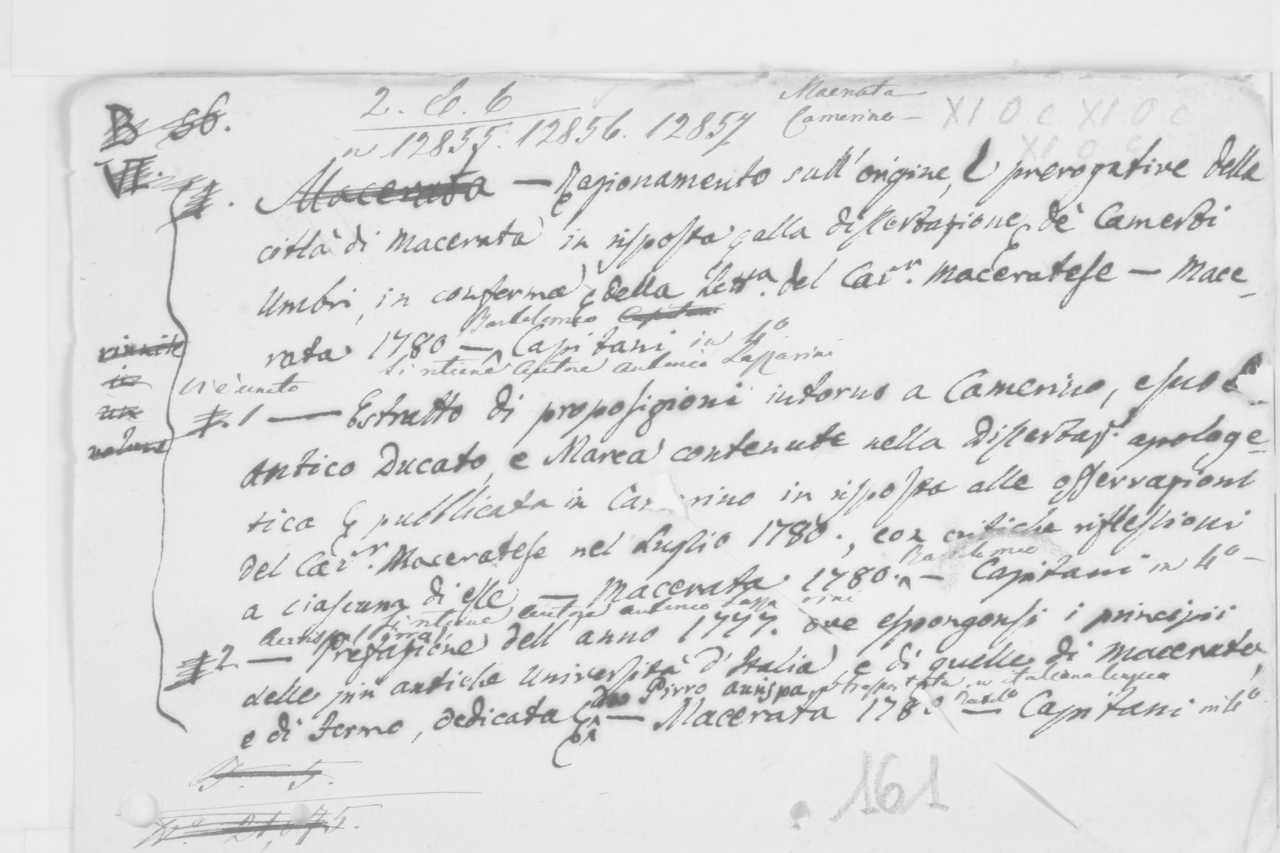 B 56.
2. C. 6
Macerata
n 12855. 12856. 12857
Camerino
XI O c XI O c
XI O c
VI.
1. Macerata — Ragionamento sull'origine, e prerogative della
città di Macerata in risposta alla dissertazione de' Camerti
Umbri, in conferma della Lett.a del Cav.r Maceratese — Mace-
rata 1780 — Bartolomeo Capitani in 4°
si ritiene autore Antonio Lazzarini
riunite
in
un
volume
Vi è unito
1 — Estratto di proposizioni intorno a Camerino, e suo
antico Ducato, e Marca contenute nella Dissertaz. apologe-
tica pubblicata in Camerino in risposta alle osservazioni
del Cav.r Maceratese nel Luglio 1780., con critiche riflessioni
a ciascuna di esse — Macerata 1780. — Bartolomeo Capitani in 4°
si ritiene autore Antonio Lazzarini
2 — Prefazione dell'anno 1777. ove espongonsi i principii
delle più antiche Università d'Italia e di quelle di Macerata,
e di Fermo, dedicata da Pirro Aurispa, trasportata in italiana lingua — Macerata 1780 — Bartol.o Capitani in 4°
161